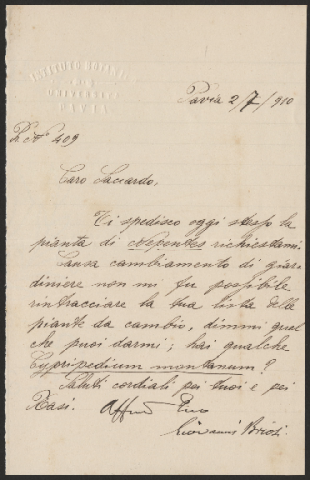 ISTITUTO BOTANICO
UNIVERSITÀ
PAVIA
Pavia 2/7/910
P. N° 409
Caro Saccardo,
Ti spedisco oggi stesso la
pianta di Nepentes richiestami.
Causa cambiamento di giar-
diniere non mi fu possibile
rintracciare la tua lista delle
piante da cambio, dimmi quel
che puoi darmi; hai qualche
Cypripedium montanum?
Saluti cordiali pei tuoi e pei
Masi. Affmo Tuo
Giovanni Briosi